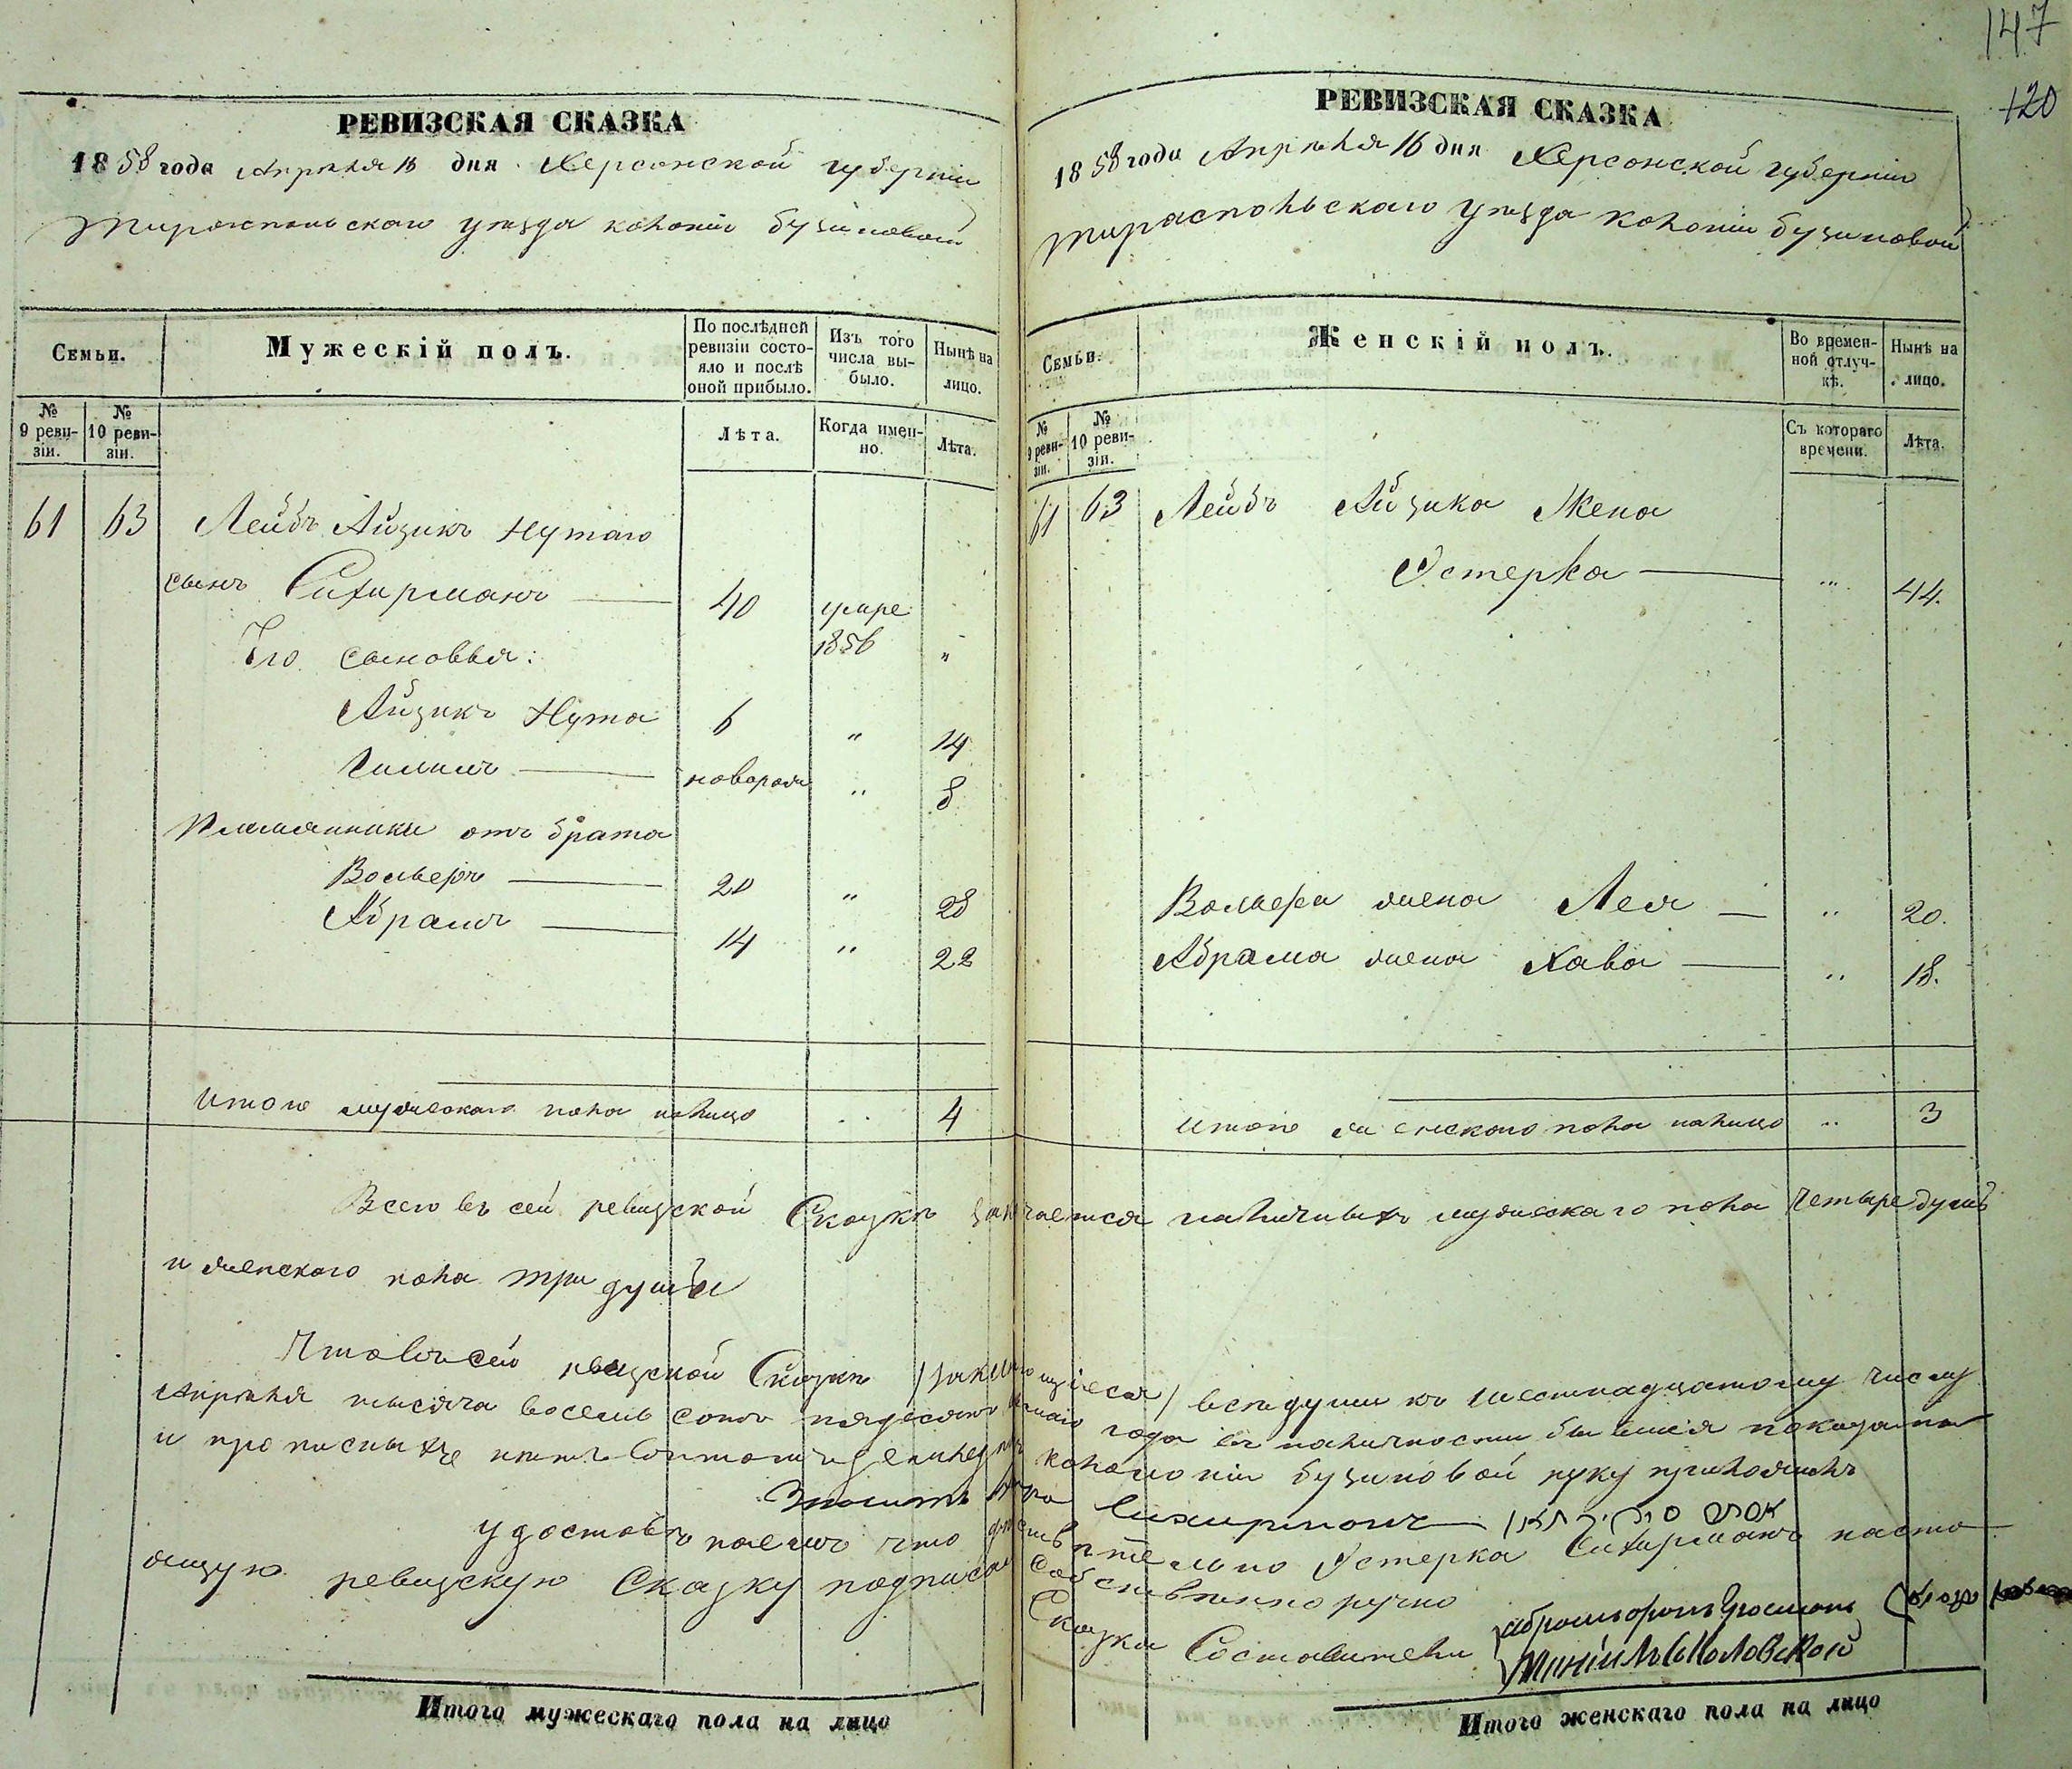 147
120
РЕВИЗСКАЯ СКАЗКА
1858 года Апрѣля 16 дня Херсонской губерніи
Тираспольскаго уѣзда колоніи Бузиновой
Семьи.
Мужескій полъ.
По послѣдней ревизіи состояло и послѣ оной прибыло.
Изъ того числа выбыло.
Нынѣ на лицо.
№ 9 ревизіи.
№ 10 ревизіи.
Лѣта.
Когда именно.
Лѣта.
61 63 Лейбъ Айзикъ Нутаго
сынъ Сихирманъ 40 умре 1856 "
Его сыновья:
Айзикъ Нута 6 " 14
Симымъ новорож " 8
Племянники отъ брата
Вольверъ 20 " 28
Абрамъ 14 " 22
Итого мужескаго пола налицо .. 4
РЕВИЗСКАЯ СКАЗКА
1858 года Апрѣля 16 дня Херсонской губерніи
Тираспольскаго уѣзда колоніи Бузиновой
Семьи.
Женскій полъ.
Во временной отлучкѣ.
Нынѣ на лицо.
№ 9 ревизіи.
№ 10 ревизіи.
Съ котораго времени.
Лѣта.
61 63 Лейбъ Айзика Жена
Эстерка " 44.
Вольвера жена Лея " 20.
Абрама жена Хава " 18.
Итого женскаго пола налицо " 3
Всего въ сей ревизской Сказкѣ значается наличныхъ мужескаго пола четыре душъ
и женскаго пола три души
Что въ сей ревизской Сказкѣ / заключающіеся / всѣ души къ шестнадцатому числу
Апрѣля тысяча восемь сотъ пядесятъ года въ наличности бывшія показаны
и прописныхъ нѣтъ въ томъ колоніи Бузиновой руку приложилъ
Сихирманъ
удостовѣряемъ что дѣйствительно Эстерка Сихирманъ насто-
ящую ревизскую Сказку подписал собственноручно
Сказки Составители
Итого мужескаго пола на лицо
Итого женскаго пола на лицо